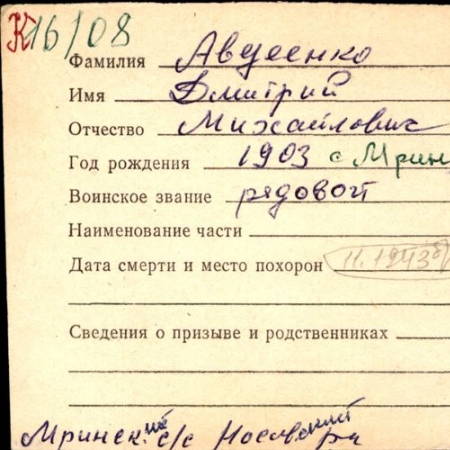 К16/08
Фамилия Авдеенко
Имя Дмитрий
Отчество Михайлович
Год рождения 1903 с Мрин
Воинское звание рядовой
Наименование части
Дата смерти и место похорон 11.1943
Сведения о призыве и родственниках
Мринский с/с Носовский р-н